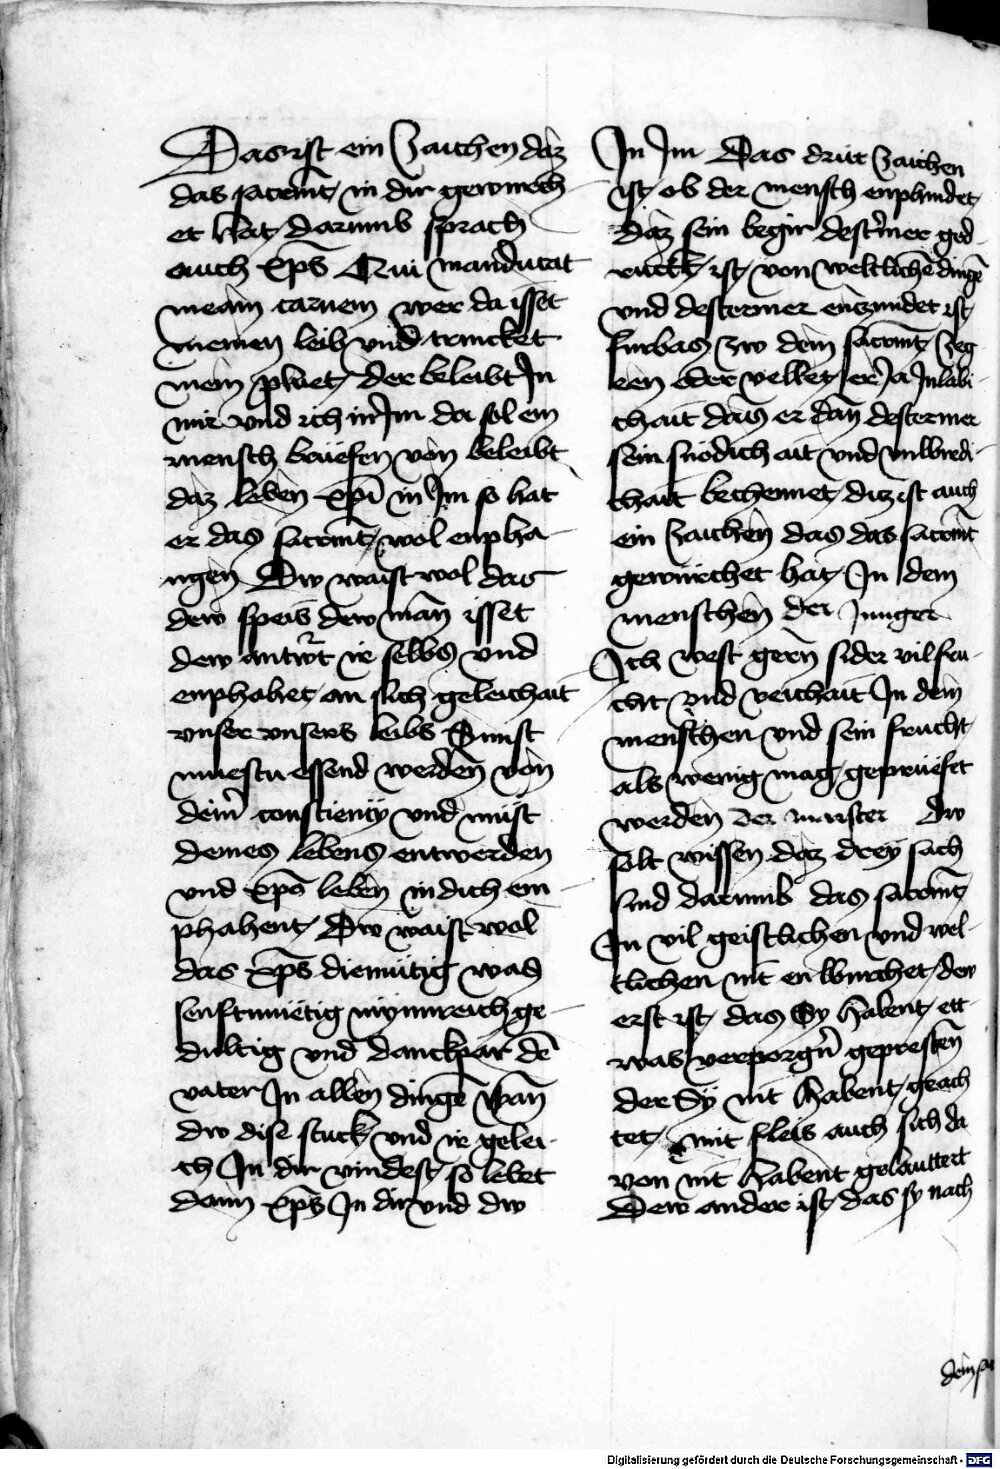 Das ist ein zaichen daz
das sacrament in dir gewürch
et hat darumb sprach
auch xps Qui manducat
meam carnem wer da isset
meinen leib und trincket
mein pluet der beleibt In
mir und ich in Im da sol ein
mensch brüefen von beleibt
daz leben xpi in Im so hat
er das sacrament wol enpha-
ngen Dw waist wol das
dew speis dew man isset
dew antwrt ir selbs und
enphahet an sich geleichait
unser unsers leibs Sunst
muestu essend werden von
deinr conscientz und must
deines lebens entwerden
und xps leben in dich em-
phahent Dw waist wol
das xps diemütig was
senftmüetig mynnreich ge-
dultig und danckpar dē
vater In allen dingē wan
dw dise stuck und ir gelei-
ch In dir vindest so lebet
dann xps In dir und dw
In Im Das drüt zaichen
ist ob der mensch enphindet
daz sein begir destermer ged-
ruckt ist von weltlichē dingē
und destermer entzundet ist
furbas zw dem sacrament
een oder vellet er Ja Inlābi-
chait das er dan destermer
sein snödichait und unwirdi-
chait bechennet diz ist auch
ein zaichen das das sacrament
gewürchet hat In dem
menschen der Junger
Ich west gern sider vil fru-
cht und reichait In dem
menschen und sein frucht
als wenig mag geprüefet
werden Der maister Dw
solt wissen daz drey sach
sind darumb das sacrament
In vil geistlichen und wel-
tlichen nit enwurchet der
erst ist das Sy habent ett-
was verporgn gepresten
der Sy nit habent geach
tet mit fleis auch sich da
von nit habent gelauttert
Dew ander ist das sy nach
dem sac
Digitalisierung gefördert durch die Deutsche Forschungsgemeinschaft - DFG